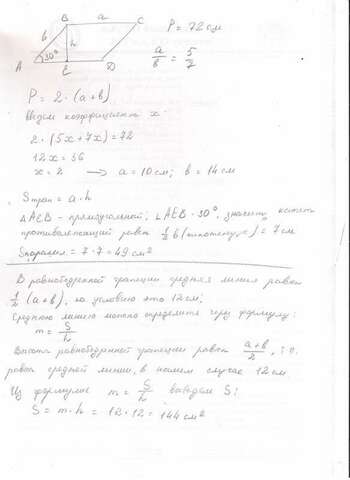 B a C
P = 72 см
b h
a/b = 5/7
A 30° E D
P = 2 · (a+b)
Введем коэффициент x
2 · (5x+7x) = 72
12x = 36
x = 2 → a = 10 см; b = 14 см
a · h
△AEB - прямоугольный; ∠AEB - 30°, значит катет
противолежащий равен 1/2 b (гипотенузе) = 7 см
= 7 · 7 = 49 см²
В равнобедренной трапеции средняя линия равна
1/2 (a+b), по условию это 12 см;
Среднюю линию можно определить через формулу:
m = S/h
Высота равнобедренной трапеции равна a+b/2, т.е.
равна средней линии, в нашем случае 12 см
Из формулы m = S/h выводим S:
S = m · h = 12 · 12 = 144 см²